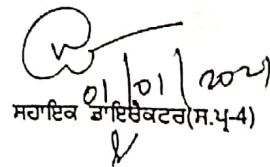 01/01/2021
ਸਹਾਇਕ ਡਾਇਰੈਕਟਰ(ਸ.ਪ੍ਰ-4)